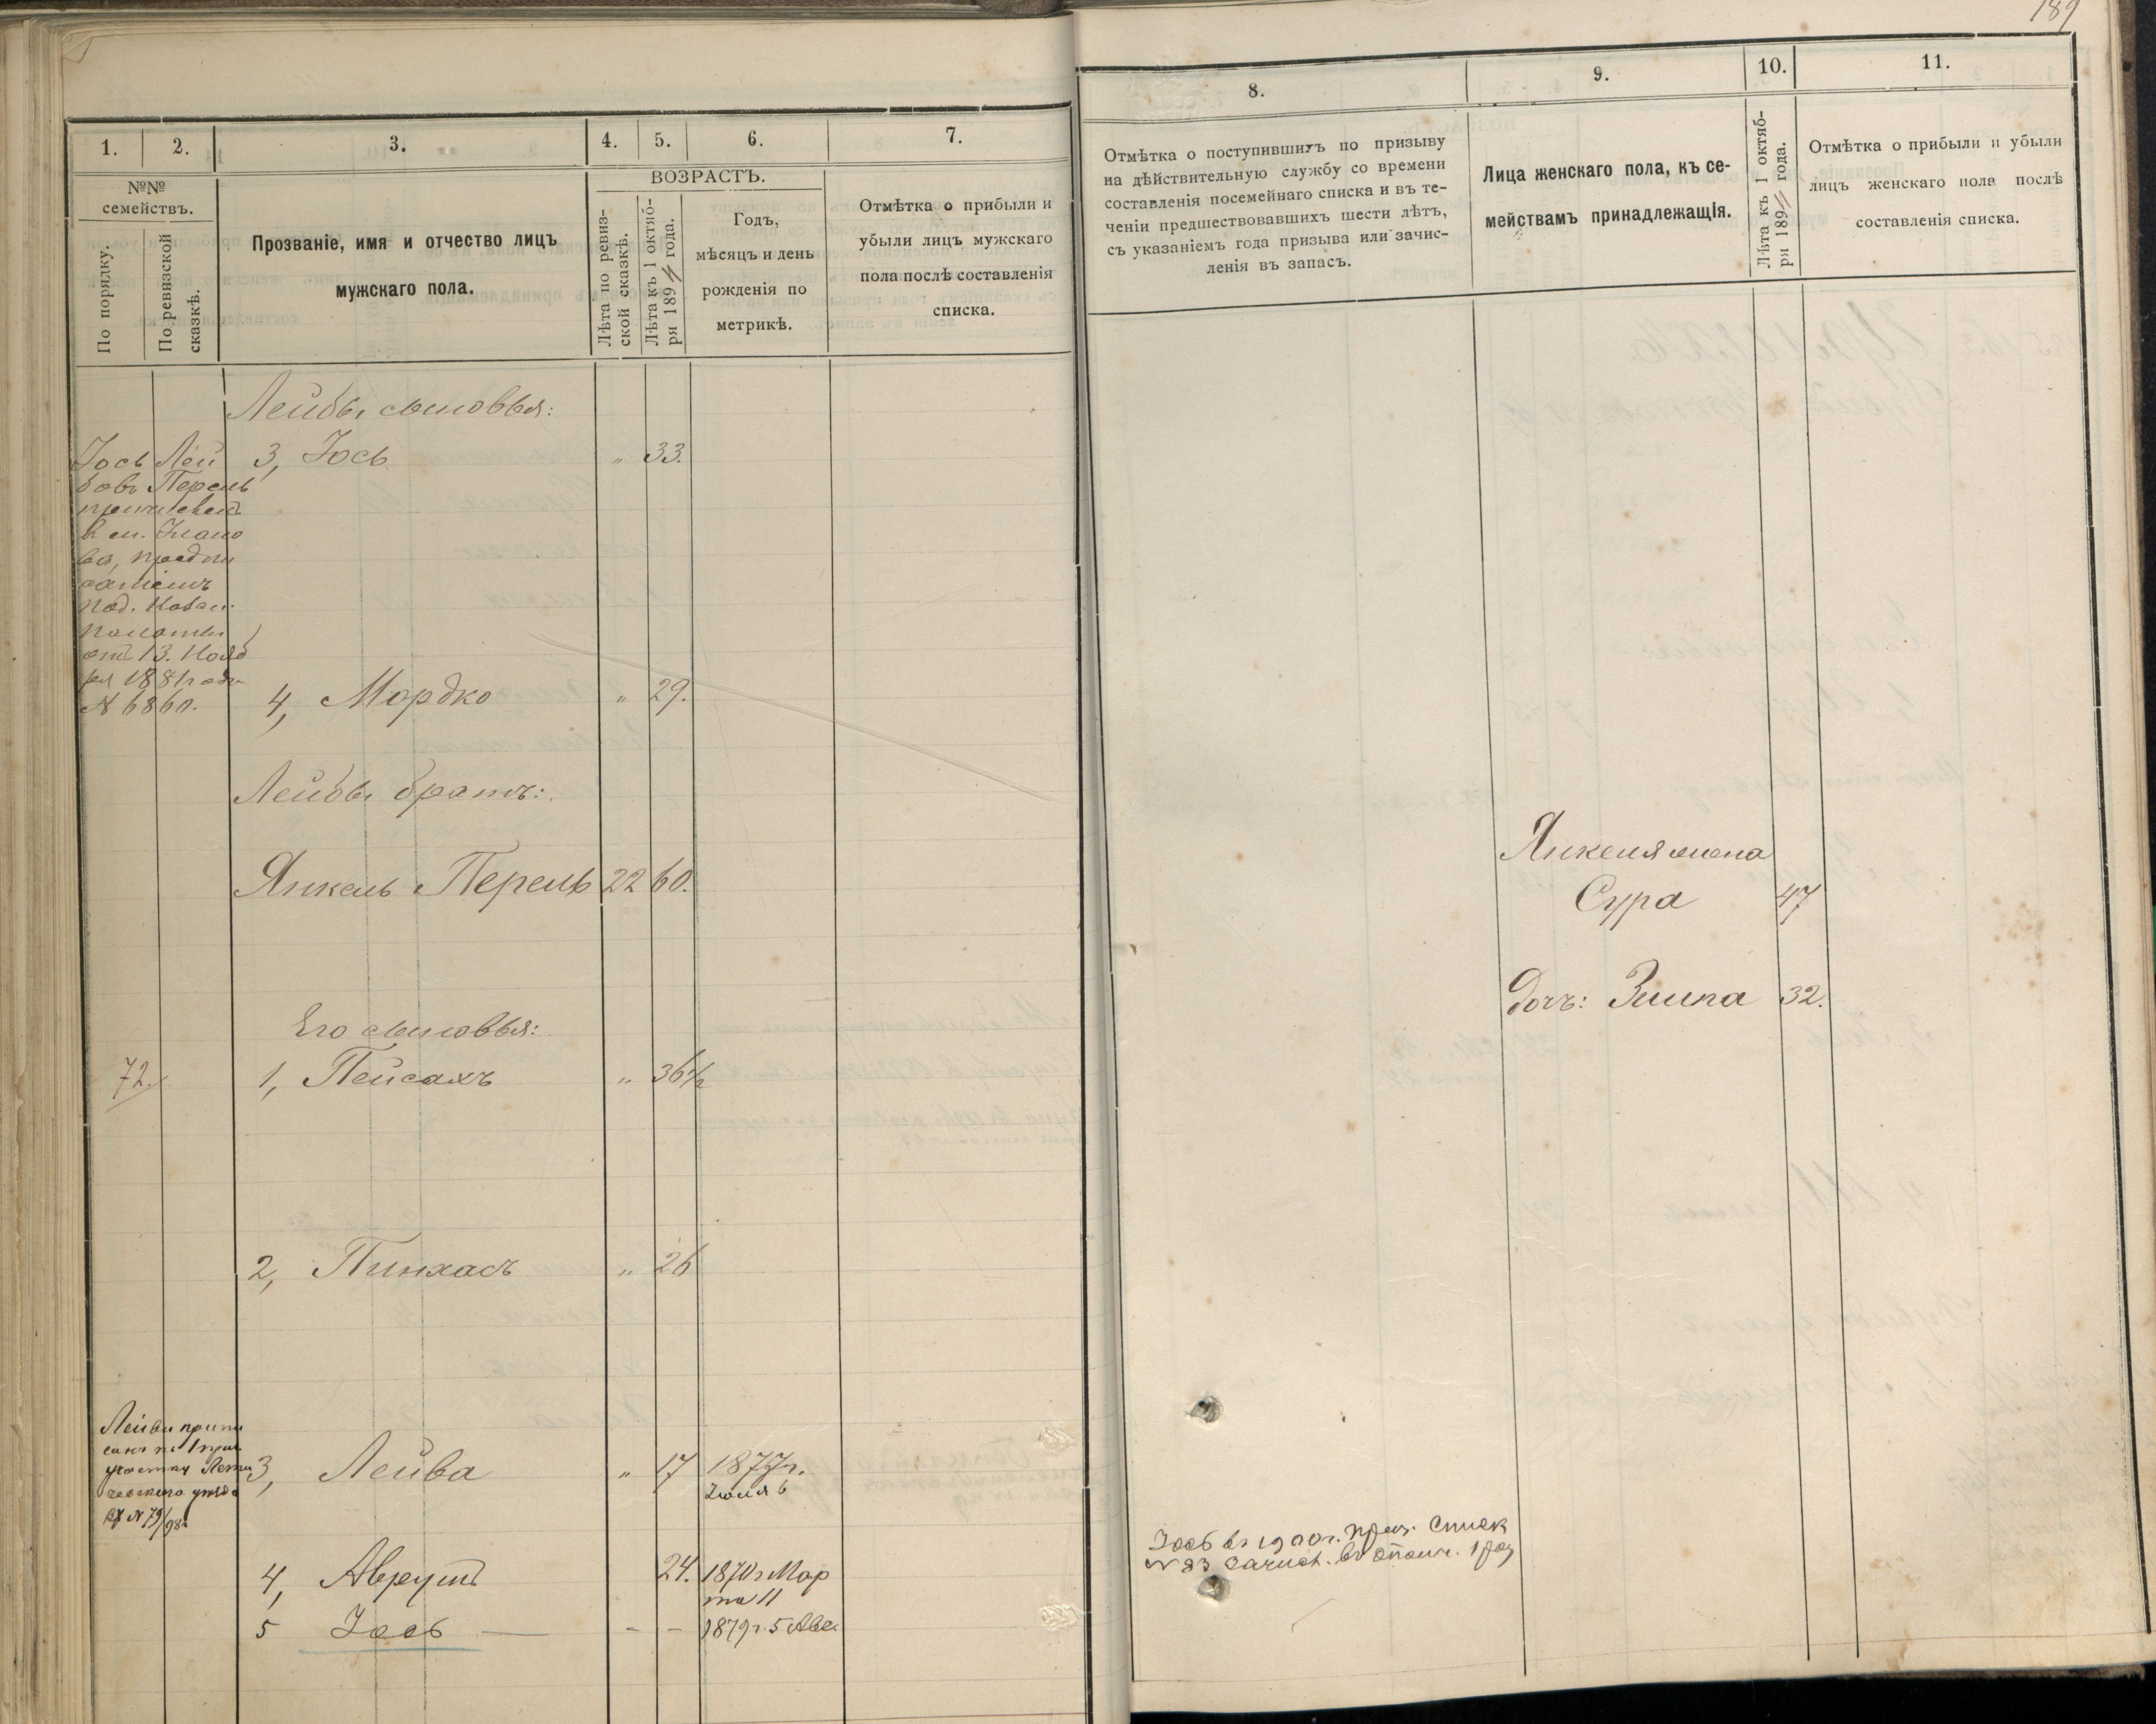 189
1.
2.
3.
4.
5.
6.
7.
№№
семействъ.
По порядку.
По ревизской
сказкѣ.
Прозваніе, имя и отчество лицъ
мужскаго пола.
ВОЗРАСТЪ.
Лѣта по ревиз-
ской сказкѣ.
Лѣта къ 1 октяб-
ря 1894 года.
Годъ,
мѣсяцъ и день
рожденія по
метрикѣ.
Отмѣтка о прибыли и
убыли лицъ мужскаго
пола послѣ составленія
списка.
Лейбы сыновья:
Іось Лей
бовъ Перель
в м.
предпи
саніемъ
Под. Казен.
Палаты
отъ 13. Нояб
ря 1881 года
№ 6860.
3, Іось " 33.
4, Мордко " 29.
Лейбы братъ:
Янкель Перель 22 60.
Его сыновья:
72.
1, Пейсахъ " 36½
2, Пинхасъ " 26
Лейба припи
санъ к 1 приз.
участку Лети
чевскаго уѣзда
№ 79/98.
3, Лейба " 17 1877г.
Іюля 6
4, Аврумъ 24. 1870г Мар
та 11
5 Іось — - - 1879г. 5 Авг.
8.
9.
10.
11.
Отмѣтка о поступившихъ по призыву
на дѣйствительную службу со времени
составленія посемейнаго списка и въ те-
ченіи предшествовавшихъ шести лѣтъ,
съ указаніемъ года призыва или зачис-
ленія въ запасъ.
Лица женскаго пола, къ се-
мействамъ принадлежащія.
Лѣта къ 1 октяб-
ря 1894 года.
Отмѣтка о прибыли и убыли
лицъ женскаго пола послѣ
составленія списка.
Янкеля жена
Сура 47
Дочь: 32.
Іось въ 1900г. приз. Списк
№ 83 Зачисл. въ ополч. 1 раз